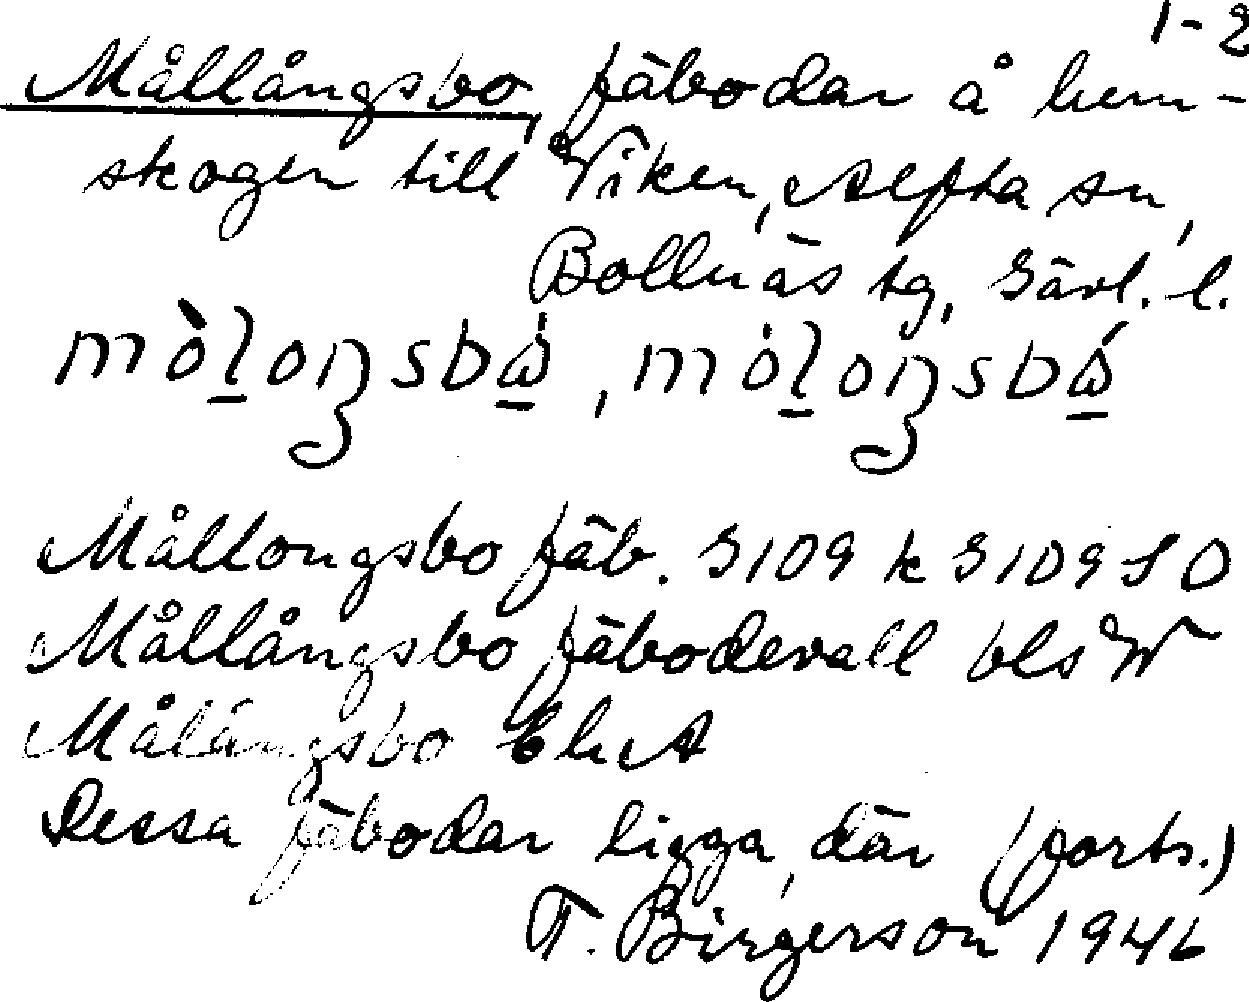 1-2
Mållångsbo, fäbodar å hem-
skogen till Viken, Alfta sn,
Bollnäs tg, Gävl. l.
mòl̠oŋsbὼ̠, mól̠oŋsbώ̠
Mållongsbo fäb. G109 k G109 SO
Mållångsbo fäbodevall bls W
Målångsbo Ek A
Dessa fäbodar ligga, där (forts.)
T. Birgerson 1946